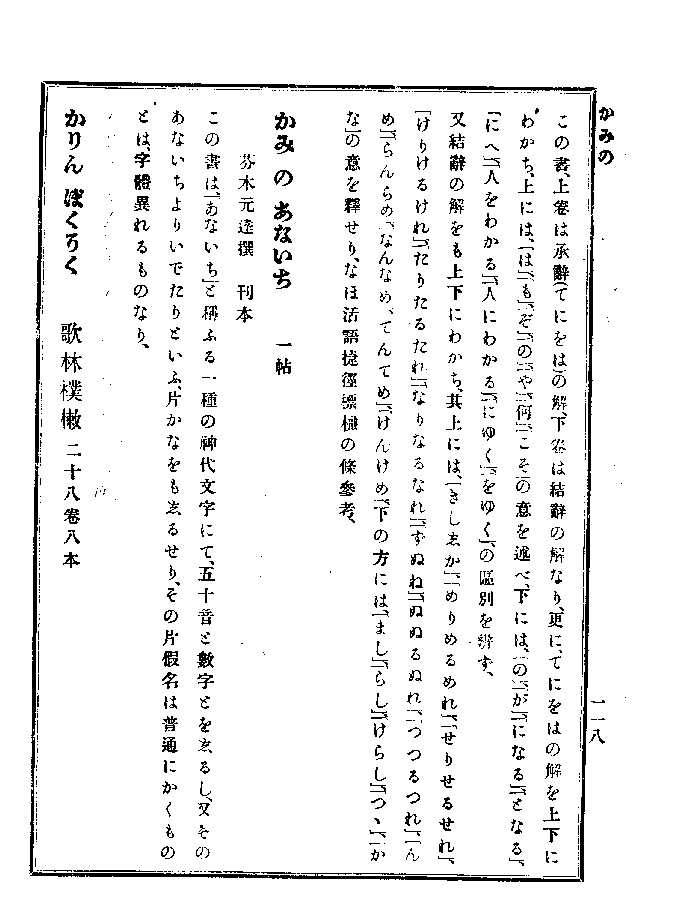 かみの
一一八
この書、上卷は承辭(てにをは)の解、下卷は結辭の解なり、更に、てにをはの解を上下に
わかち、上には、「は」「も」「ぞ」「の」「や」「何」「こそ」の意を述べ、下には、「の」「が」「になる」「となる」、
「にへ」「人をわかる」「人にわかる」「にゆく」「をゆく」、の區別を辨ず、
又結辭の解をも上下にわかち、其上には、「きしゑか」「めりめるめれ」「せりせるせれ」、
「けりけるけれ」「たりたるたれ」「なりなるなれ」「ずぬね」「ぬぬるぬれ」「つつるつれ」「ん
め」「らんらめ」「なんなめ、てんてめ」「けんけめ」、下の方には、「まし」「らし」「けらし」「つヽ」「か
な」の意を釋せり、なほ活語捷徑標樋の條參考、
かみ の あないち 一帖
芬木元達撰 刊本
この書は、「あないち」と稱ふる一種の神代文字にて、五十音と數字とをゑるし、又その
あないちよりいでたりといふ、片かなをもゑるせり、その片假名は普通にかくもの
とは、字體異れるものなり、
かりん ぼくろく 歌林樸樕 二十八卷八本